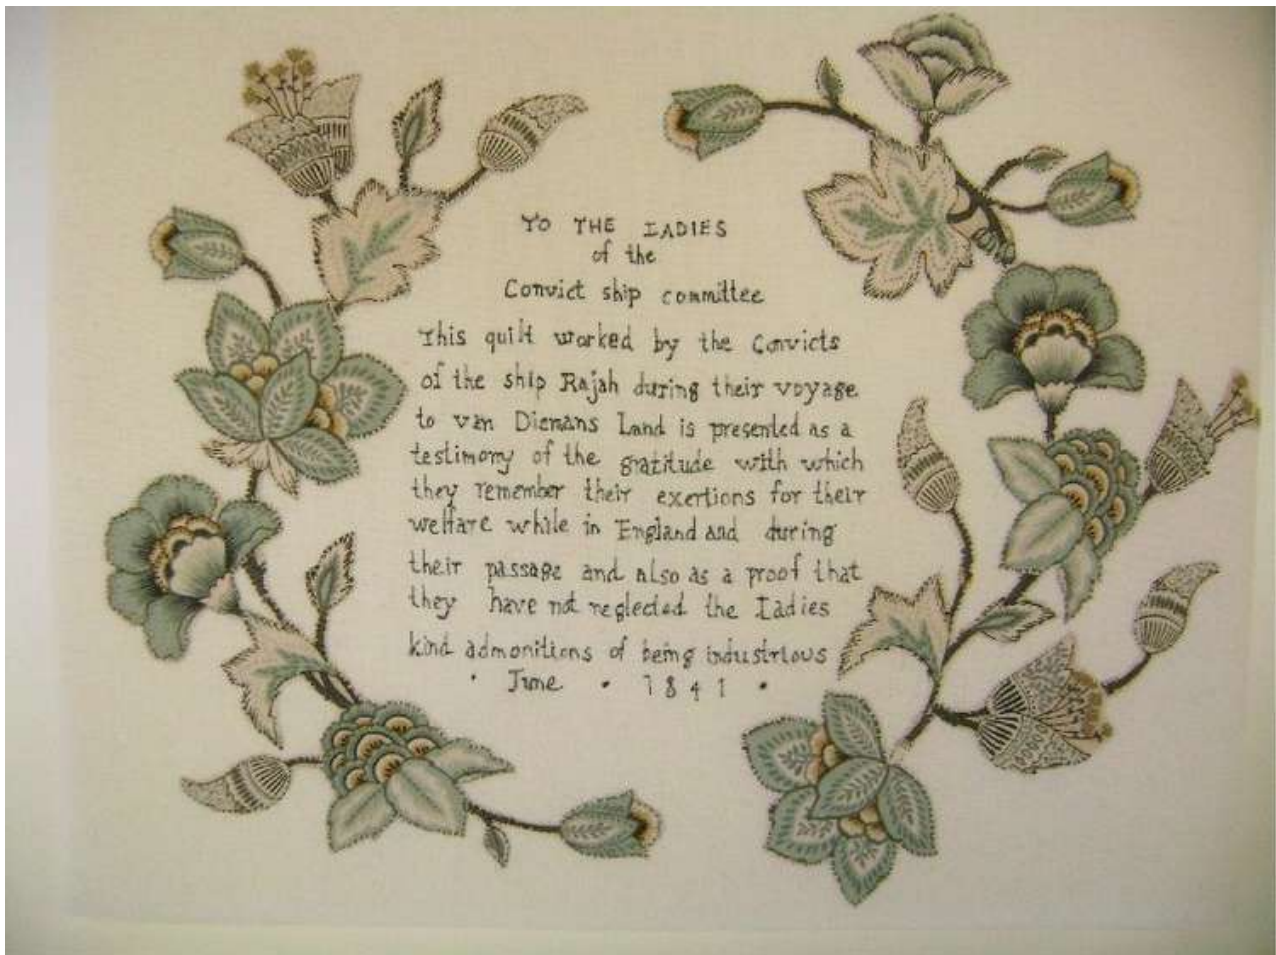 TO THE LADIES
of the
Convict ship committee
This quilt worked by the Convicts
of the ship Rajah during their voyage
to van Diemans Land is presented as a
testimony of the gratitude with which
they remember their exertions for their
welfare while in England and during
their passage and also as a proof that
they have not neglected the Ladies
kind admonitions of being industrious
· June · 1841 ·